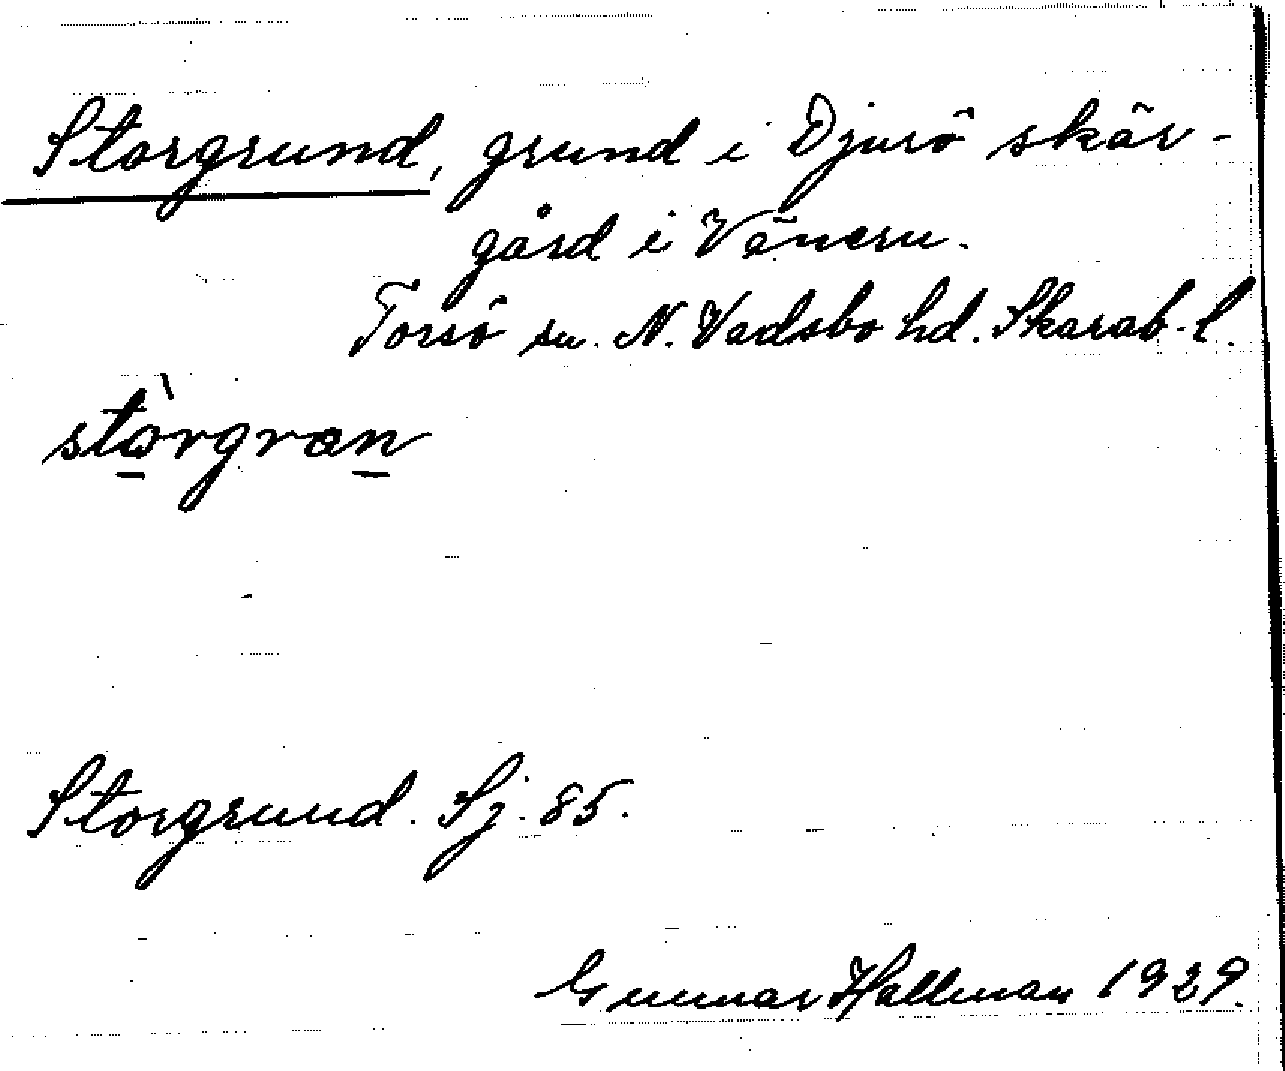 Storgrund, grund i Djurö skär-
gård i Vänern.
Torsö sn. N. Vadsbo hd. Skarab. l.
stòrgran
Storgrund. Sj. 85.
Gunnar Hallman 1929.